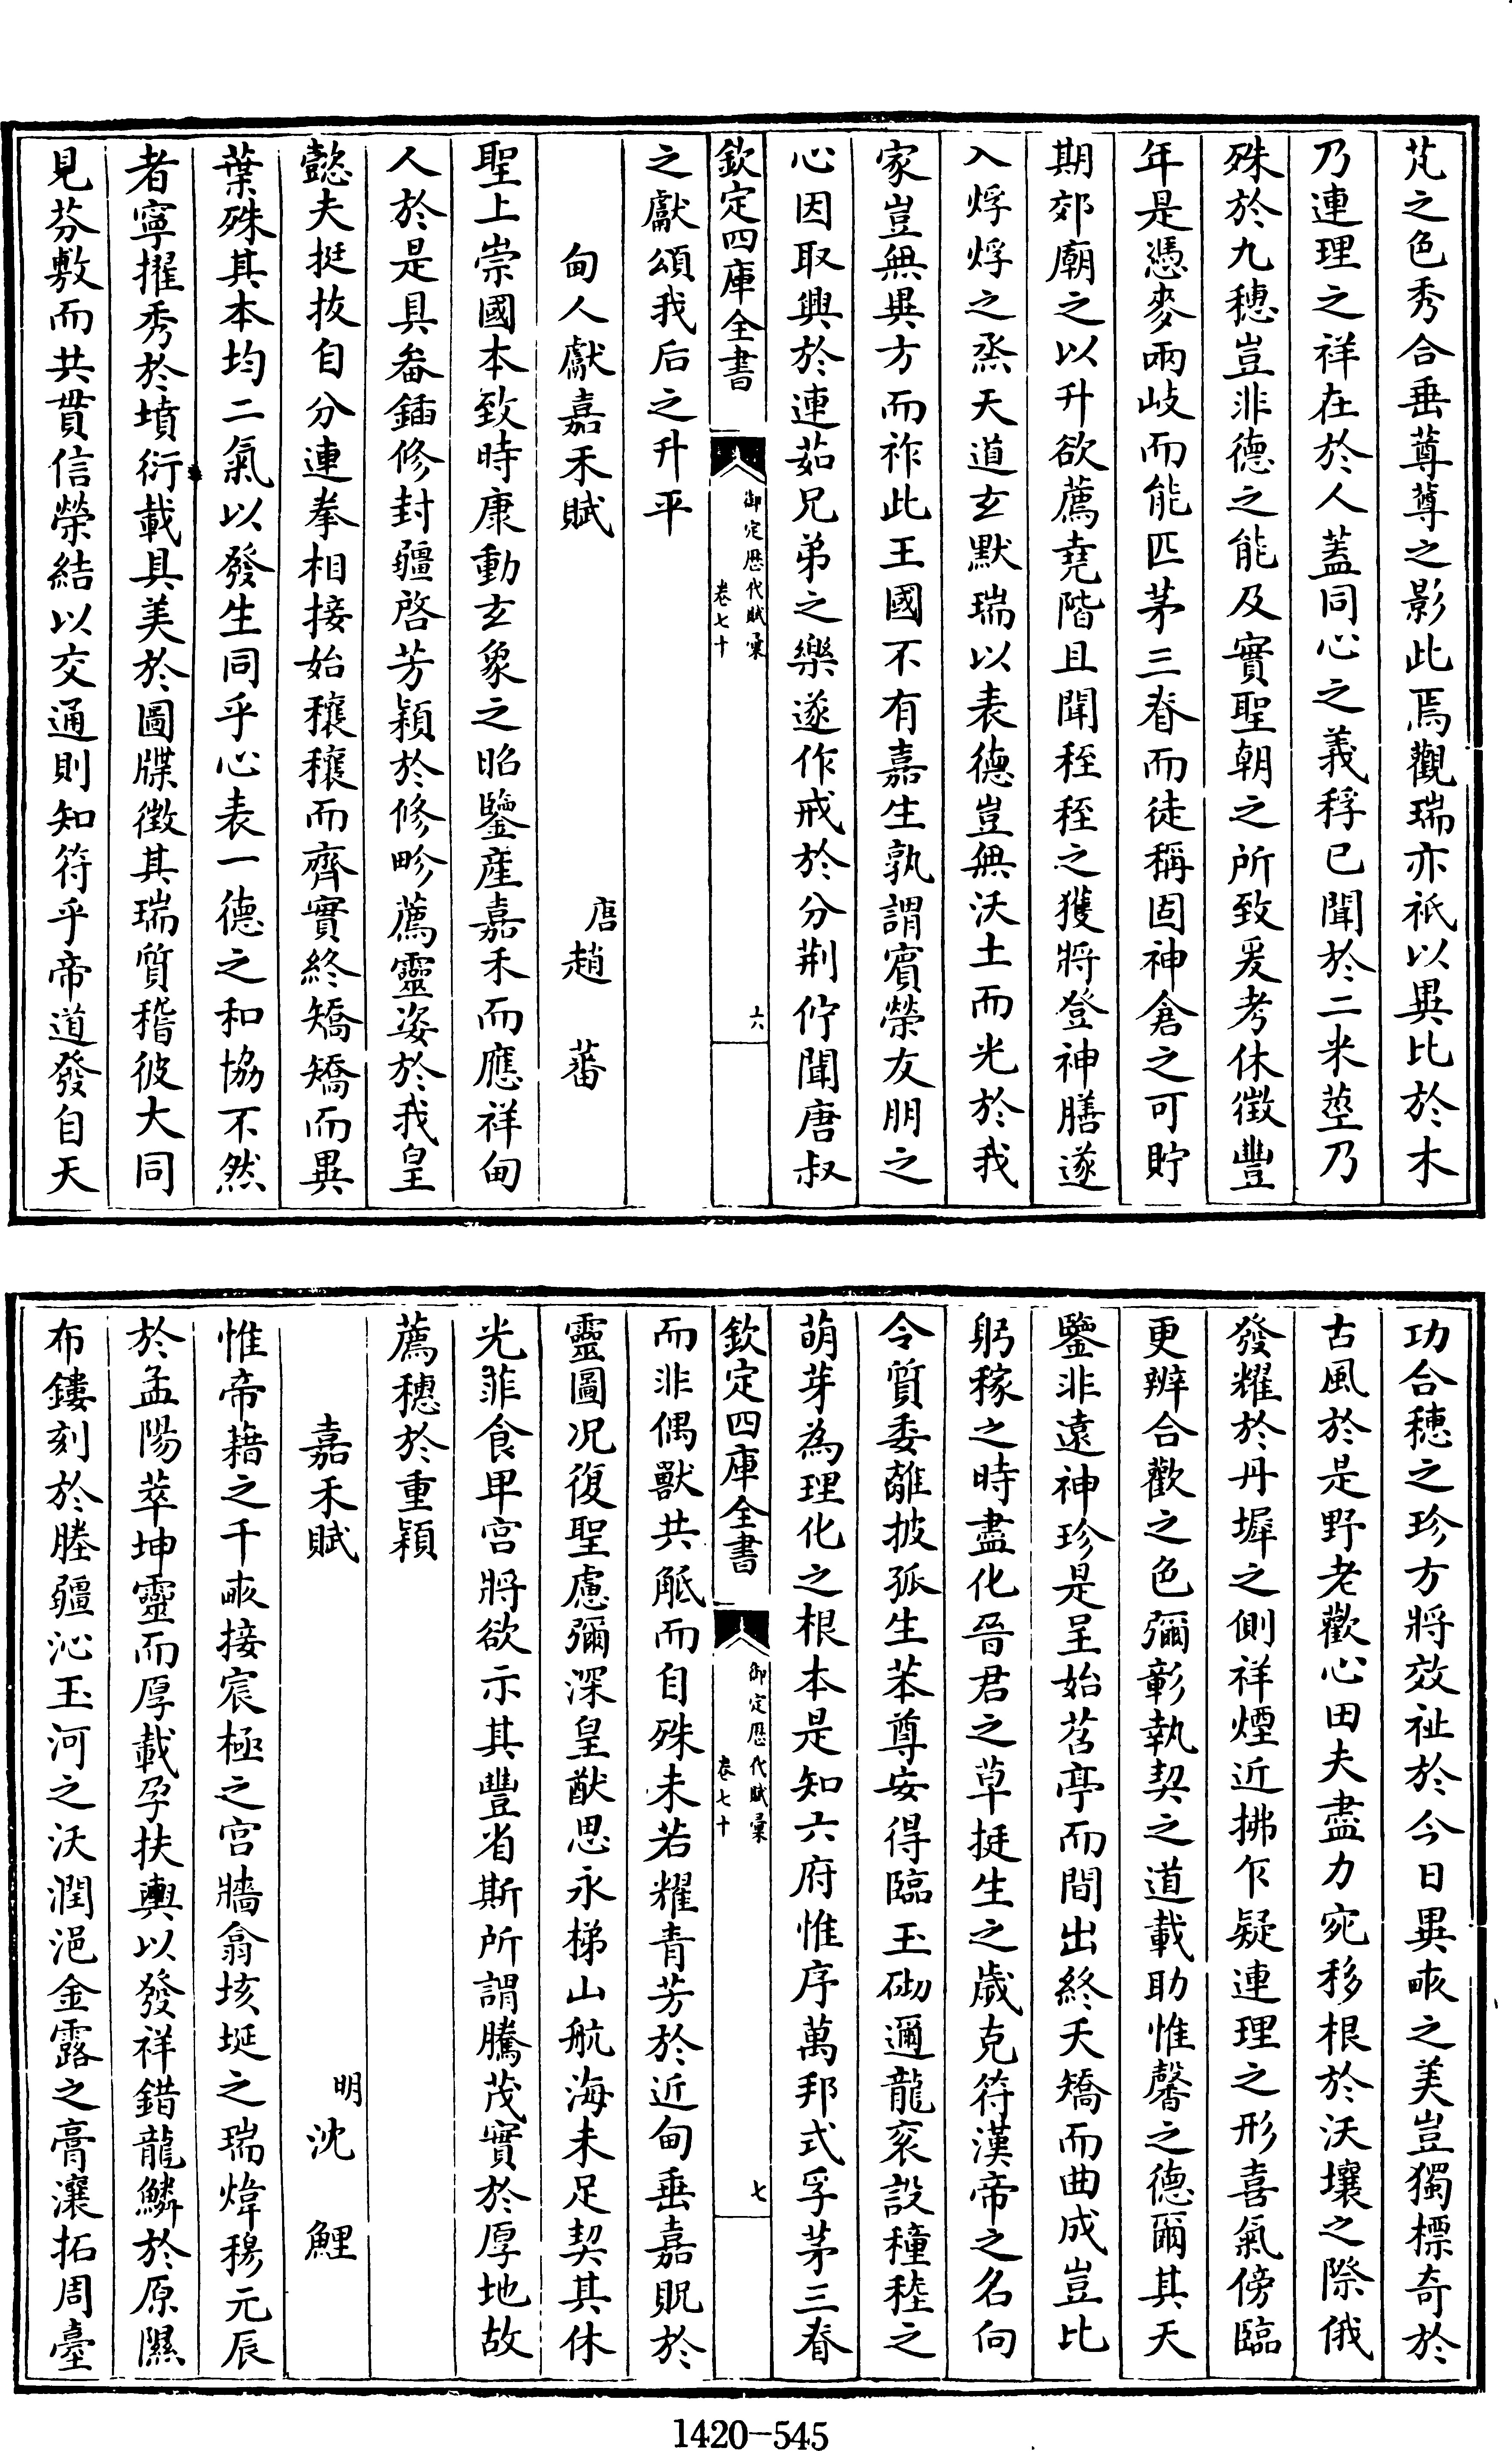 芃之色秀合垂蓴蓴之影此焉觀瑞亦祇以異比於木
乃連理之祥在於人蓋同心之義稃已聞於二米莖乃
殊於九穗豈非德之能及實聖朝之所致爰考休徵豐
年是憑麥兩岐而能匹茅三脊而徒稱固神倉之可貯
期郊廟之以升欲薦堯階且聞秷秷之穫將登神膳遂
入烰烰之烝天道玄默瑞以表德豈無沃土而光於我
家豈無異方而祚此王國不有嘉生孰謂賓榮友朋之
心因取興於連茹兄弟之樂遂作戒於分荆佇聞唐叔
欽定四庫全書
御定歴代賦彙
卷七十
六
之獻頌我后之升平
甸人獻嘉禾賦
唐趙蕃
聖上崇國本致時康動玄象之昭鑒産嘉禾而應祥甸
人於是具畚鍤修封疆啓芳穎於修畛薦靈姿於我皇
懿夫挺㧞自分連拳相接始穰穰而齊實終矯矯而異
葉殊其本均二氣以發生同乎心表一德之和協不然
者寧擢秀於墳衍載具美於圖牒徴其瑞質稽彼大同
見芬敷而共貫信榮結以交通則知符乎帝道發自天
功合穗之珍方將效祉於今日異畝之美豈獨標奇於
古風於是野老歡心田夫盡力宛移根於沃壤之際俄
發耀於丹墀之側祥煙近拂乍疑連理之形喜氣傍臨
更辨合歡之色彌彰執契之道載助惟馨之德爾其天
鑒非遠神珍是呈始苕亭而間出終夭矯而曲成豈比
躬稼之時盡化晉君之草挺生之歲克符漢帝之名向
令質委離披孤生苯䔿安得臨玉砌邇龍衮設穜稑之
萌芽為理化之根本是知六府惟序萬邦式孚茅三脊
欽定四庫全書
御定歴代賦彙
卷七十
七
而非偶獸共觝而自殊未若耀青芳於近甸垂嘉貺於
靈圖况復聖慮彌深皇猷思永梯山航海未足契其休
光菲食卑宫將欲示其豐省斯所謂騰茂實於厚地故
薦穗於重穎
嘉禾賦
明沈鯉
惟帝藉之千畝接宸極之宫牆翕垓埏之瑞煒穆元辰
於孟陽萃坤靈而厚載孕扶輿以發祥錯龍鱗於原隰
布鏤刻於塍疆沁玉河之沃潤浥金露之膏瀼拓周臺
1420-545